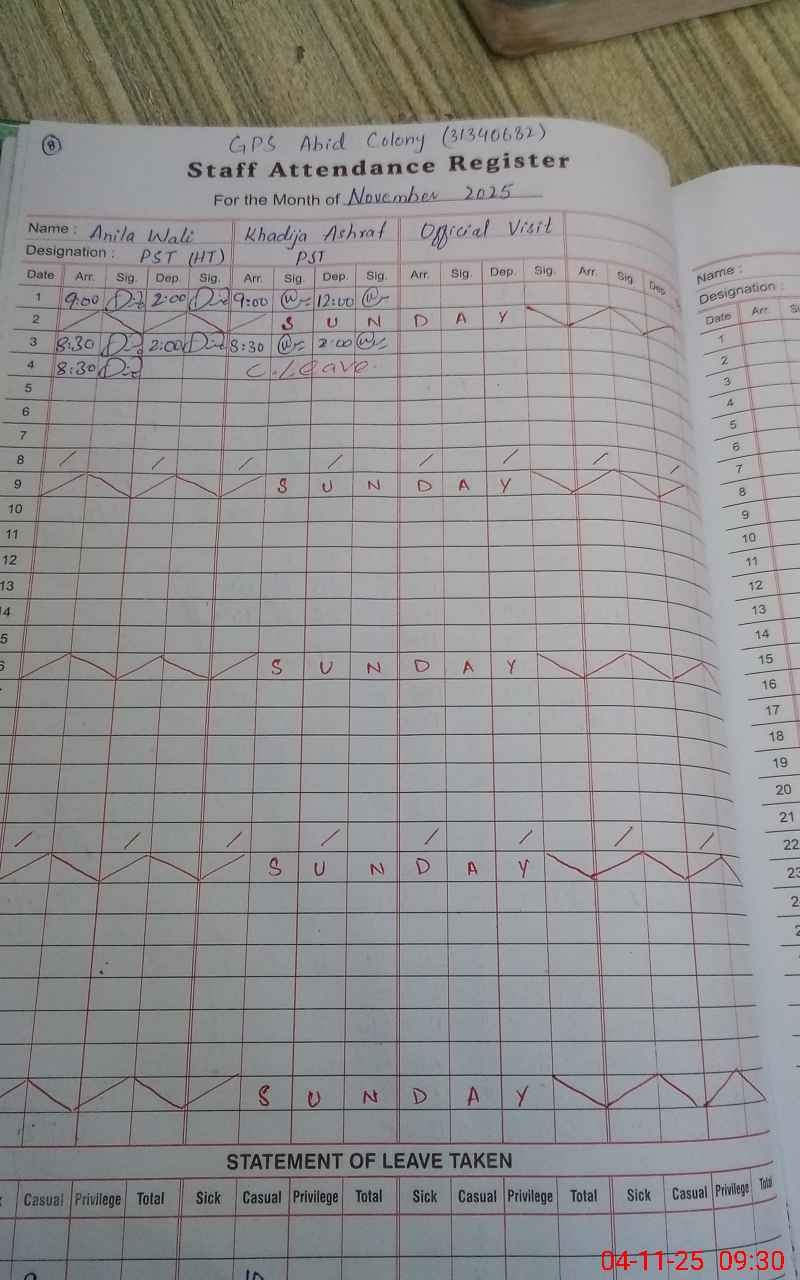 8
GPS Abid Colony (31340682)
Staff Attendance Register
For the Month of November 2025
Name : Anila Wali Khadija Ashraf Official Visit
Designation : PST (HT) PST
Date Arr. Sig. Dep. Sig. Arr. Sig. Dep. Sig. Arr. Sig. Dep. Sig. Arr. Sig. Dep. S
1 9:00 2:00 9:00 12:00
2 S U N D A Y
3 8:30 2:00 8:30 2:00
4 8:30 C.leave.
5
6
7
8
9 S U N D A Y
10
11
12
13
14
5
6 S U N D A Y
S U N D A Y
S U N D A Y
STATEMENT OF LEAVE TAKEN
k Casual Privilege Total Sick Casual Privilege Total Sick Casual Privilege Total Sick Casual Privilege Total
10
Name :
Designation :
Date Arr. Si
1
2
3
4
5
6
7
8
9
10
11
12
13
14
15
16
17
18
19
20
21
22
23
2
2
04-11-25 09:30